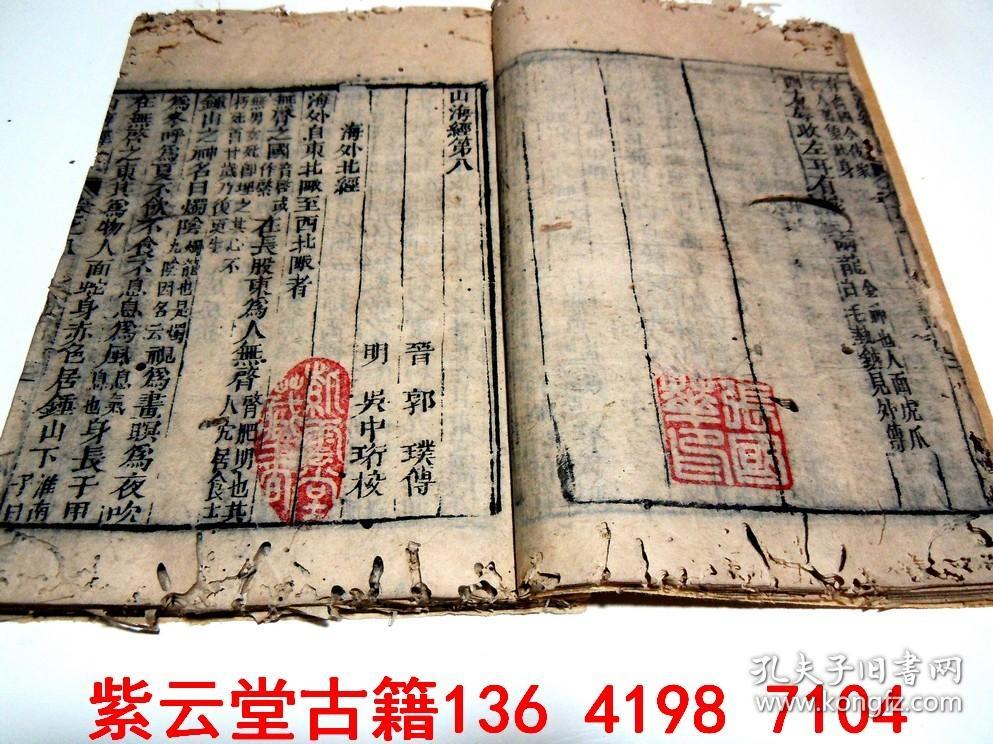 西方蓐收左耳有蛇乘兩龍
金神也人面虎爪
白毛執鉞見外傳
張國華印
山海經第八
晉 郭 璞傳
明 吳中珩校
海外北經
海外自東北陬至西北陬者
無臂之國音啓或作綮在長股東為人無臂臂肥腸也其人穴居食土
無男女死即埋之其心不朽死百廿歲乃復更生
鍾山之神名曰燭陰燭龍也是燭九陰因名云視為晝瞑為夜吹
為冬呼為夏不飲不食不息息為風息氣息也身長千里
在無臂之東其為物人面蛇身赤色居鍾山下淮南子曰
紫云堂古籍136 4198 7104
孔夫子旧书网
www.kongfz.com